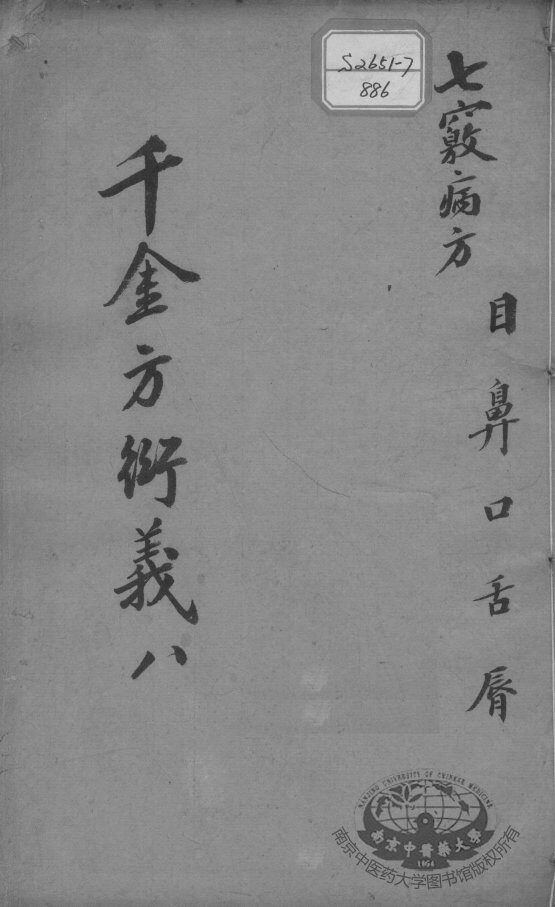 S2651-7
886
七竅病方
目鼻口舌脣
千金方衍義八
NANJING UNIVERSITY OF CHINESE MEDICINE
南京中醫藥大學
1954
南京中医药大学图书馆版权所有